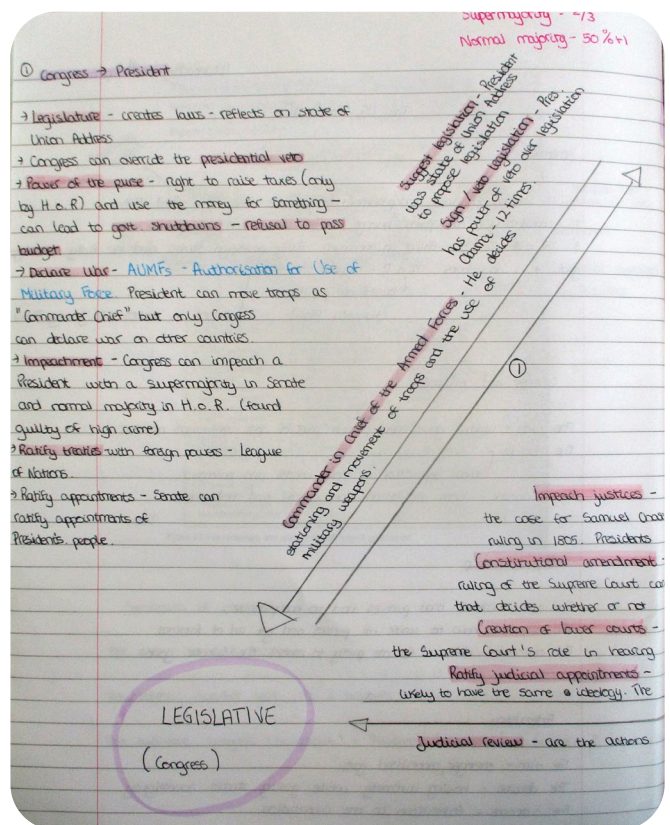 Supermajority - 2/3
Normal majority - 50%+1
① Congress → President
→ Legislature - creates laws - reflects on state of
Union Address
→ Congress can override the presidential veto
→ Power of the purse - right to raise taxes (only
by H.o.R) and use the money for something -
can lead to govt shutdowns - refusal to pass
budget
→ Declare war - AUMFs - Authorisation for Use of
Military Force. President can move troops as
"Commander Chief" but only Congress
can declare war on other countries.
→ Impeachment - Congress can impeach a
President with a supermajority in Senate
and normal majority in H.o.R. (found
guilty of high crime)
→ Ratify treaties with foreign powers - League
of Nations.
→ Ratify appointments - Senate can
ratify appointments of
Presidents people.
Suggest legislation - President
was State of Union Address
to propose legislation
Sign / veto legislation - Pres.
has power of veto over legislation
Obama - 12 times.
Commander in Chief of the Armed Forces - He decides
stationing and movement of troops and the use of
military weapons.
①
Impeach justices -
the case for Samuel Chase
ruling in 1805. Presidents
Constitutional amendment -
ruling of the Supreme Court can
that decides whether or not
Creation of lower courts -
the Supreme Court's role in hearing
Ratify judicial appointments -
likely to have the same ideology. The
Judicial review - are the actions
LEGISLATIVE
(Congress)